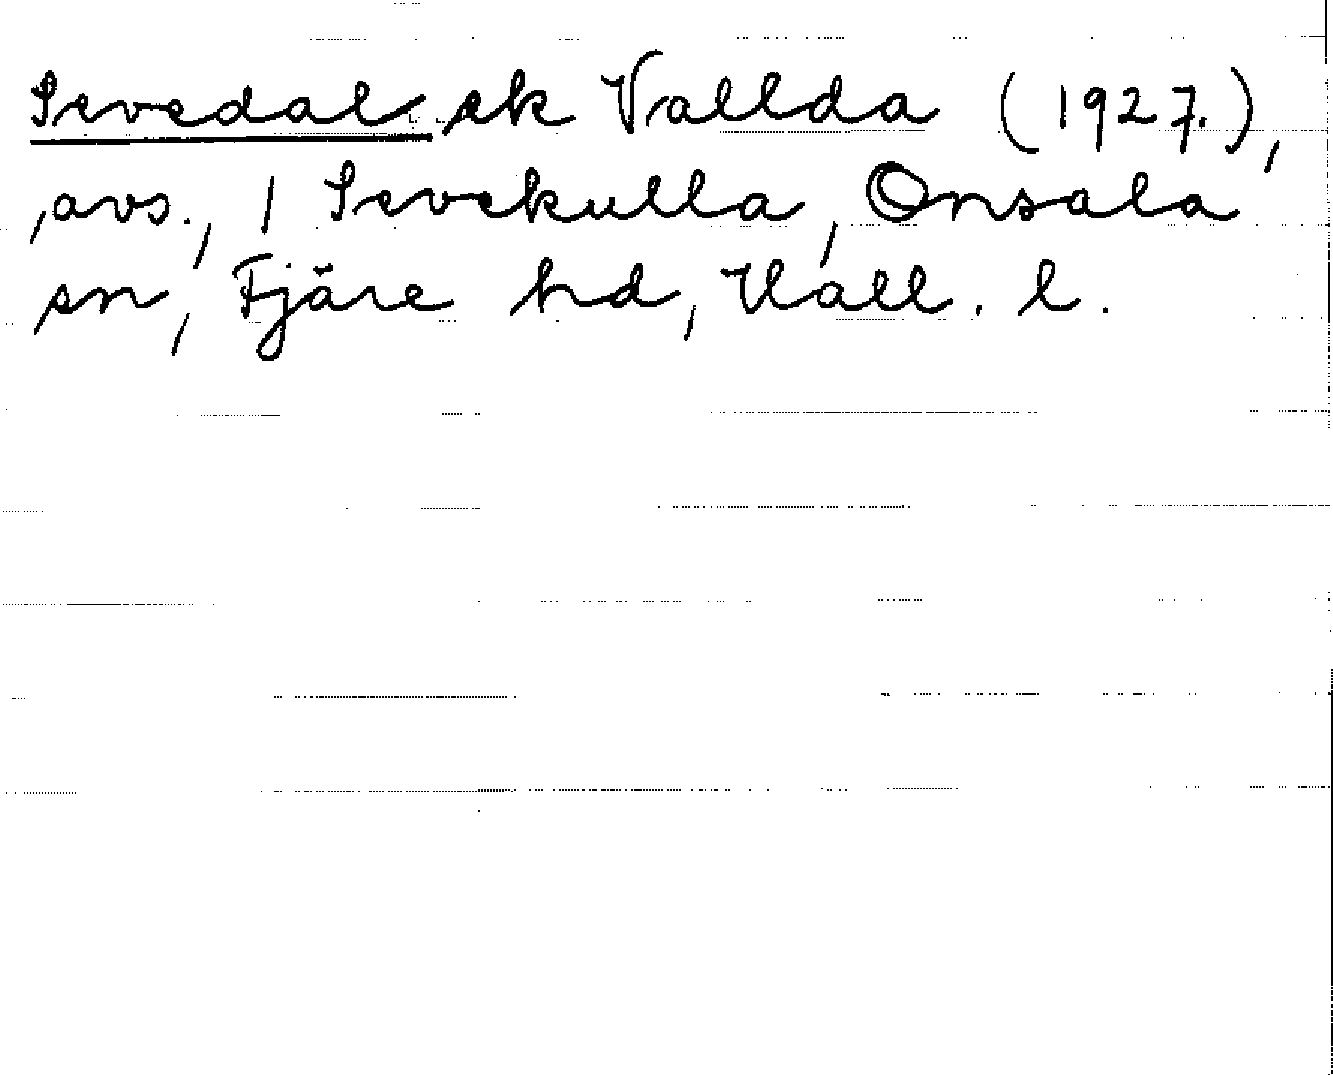 Sevedal ek Vallda (1927.),
avs., 1 Sevekulla, Onsala
sn, Fjäre hd, Hall. l.